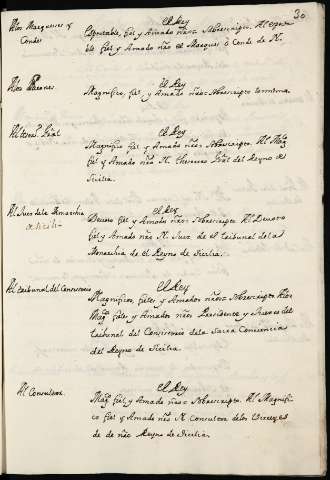 30
A los Marqueses y Condes
El Rey
Espectable, fiel y Amado nr̃o= Sobrescripto. Al especta
ble fiel y Amado nr̃o el Marques ó Conde de N.
A los Varones
El Rey
Magnifico, fiel y Amado nr̃o= Sobrescripto
Al Then.e Gr̃al
El Rey
Magnifico fiel y Amado nr̃o= Sobrescripto. Al Mag.co
fiel y Amado nr̃o N. theniente Gr̃al del Reyno de
Sicilia.
Al Juez de la Monarchia
de Sicilia
El Rey
Devoto fiel y Amado nr̃o= Sobrescripto. Al Devoto
fiel y Amado nr̃o N. Juez de el tribunal de la
Monarchia de el Reyno de Sicilia.
Al tribunal del Concistorio
El Rey
Magnificos, fieles y Amados nr̃os= Sobrescripto A los
Mag.cos fieles y Amados nr̃os Presidente y Jueces del
tribunal del Concistorio de la Sacra Conciencia
del Reyno de Sicilia.
Al Consultor
El Rey
Mag.co fiel y Amado nr̃o= Sobrescripto. Al Magnifi
co fiel y Amado nr̃o N. Consultor de los Virreyes
de nr̃o Reyno de Sicilia.